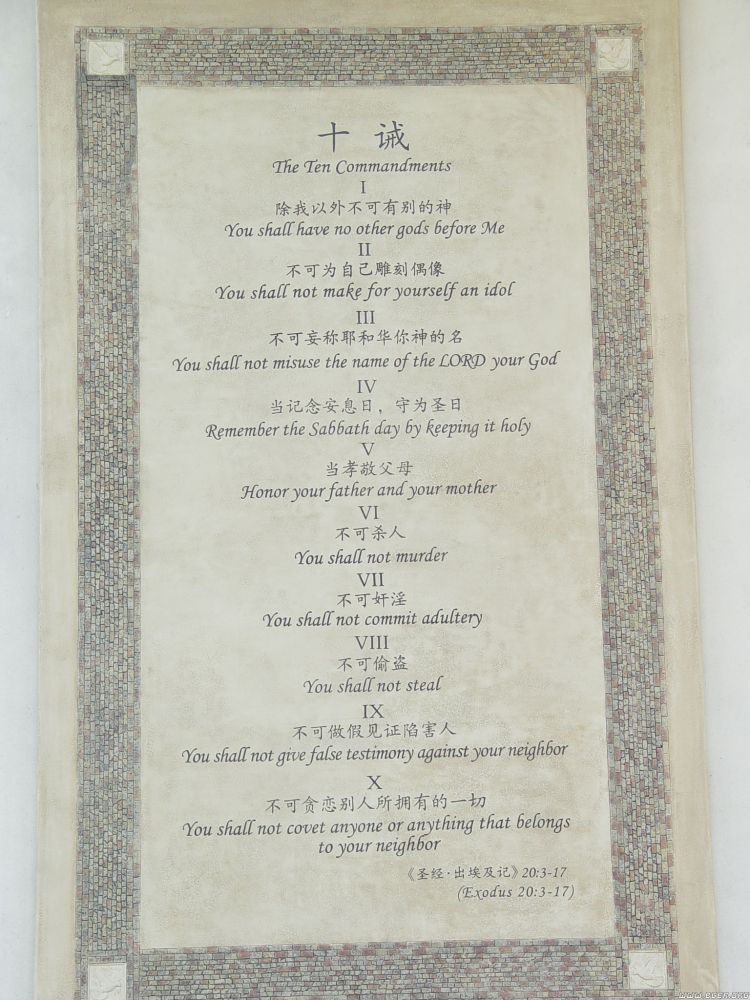 十 诫
The Ten Commandments
I
除我以外不可有别的神
You shall have no other gods before Me
II
不可为自己雕刻偶像
You shall not make for yourself an idol
III
不可妄称耶和华你神的名
You shall not misuse the name of the LORD your God
IV
当记念安息日，守为圣日
Remember the Sabbath day by keeping it holy
V
当孝敬父母
Honor your father and your mother
VI
不可杀人
You shall not murder
VII
不可奸淫
You shall not commit adultery
VIII
不可偷盗
You shall not steal
IX
不可做假见证陷害人
You shall not give false testimony against your neighbor
X
不可贪恋别人所拥有的一切
You shall not covet anyone or anything that belongs
to your neighbor
《圣经·出埃及记》20:3-17
(Exodus 20:3-17)